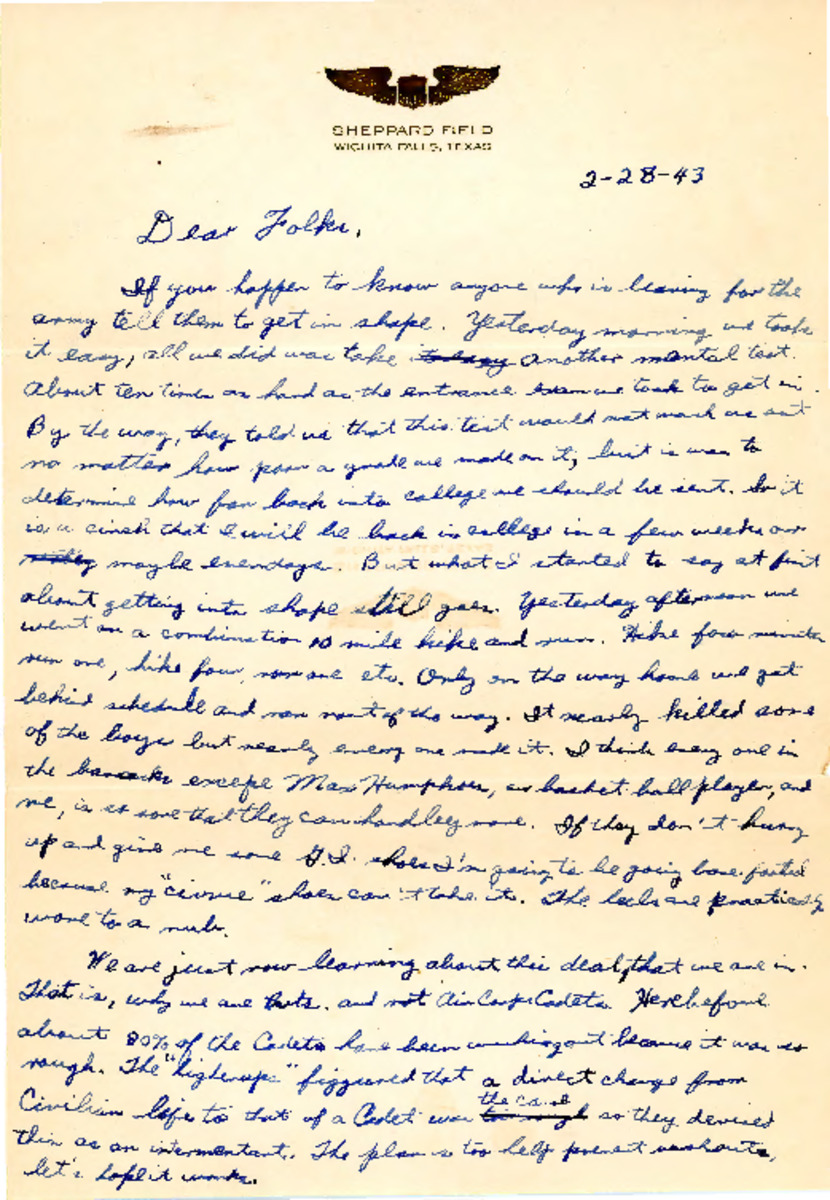 SHEPPARD FIELD
WICHITA FALLS, TEXAS
2-28-43
Dear Folks,
If you happen to know anyone who is leaving for the
army tell them to get in shape. Yesterday morning we took
it easy, all we did was take another mental test.
About ten times as hard as the entrance exam we took to get in.
By the way, they told us that this test would not wash us out
no matter how poor a grade we made on it, but is was to
determine how far back into college we should be sent. So it
is a cinch that I will be back in college in a few weeks or
maybe even days. But what I started to say at first
about getting into shape still goes. Yesterday afternoon we
went on a combination 10 mile hike and run. Hike four minutes
run one, hike four, run one etc. Only on the way home we got
behind schedule and ran most of the way. It nearly killed some
of the boys but nearly every one made it. I think every one in
the barracks except Max Humphries, a basket ball player, and
me, is so sore that they can hardley move. If they don't hurry
up and give me some G.I. shoes I'm going to be going bare footed
because my "civvie" shoes can't take it. The heels are practically
wore to a nub.
We are just now learning about this deal, that we are in.
That is, why we are and not Air Corps Cadets. Heretofore
about 80% of the Cadets have been washing out because it was so
rough. The "higherups" figgured that a direct change from
Civilian life to that of a Cadet was the cause so they devised
this as an intermentant. The plan is too help prevent washouts,
let's hope it works.